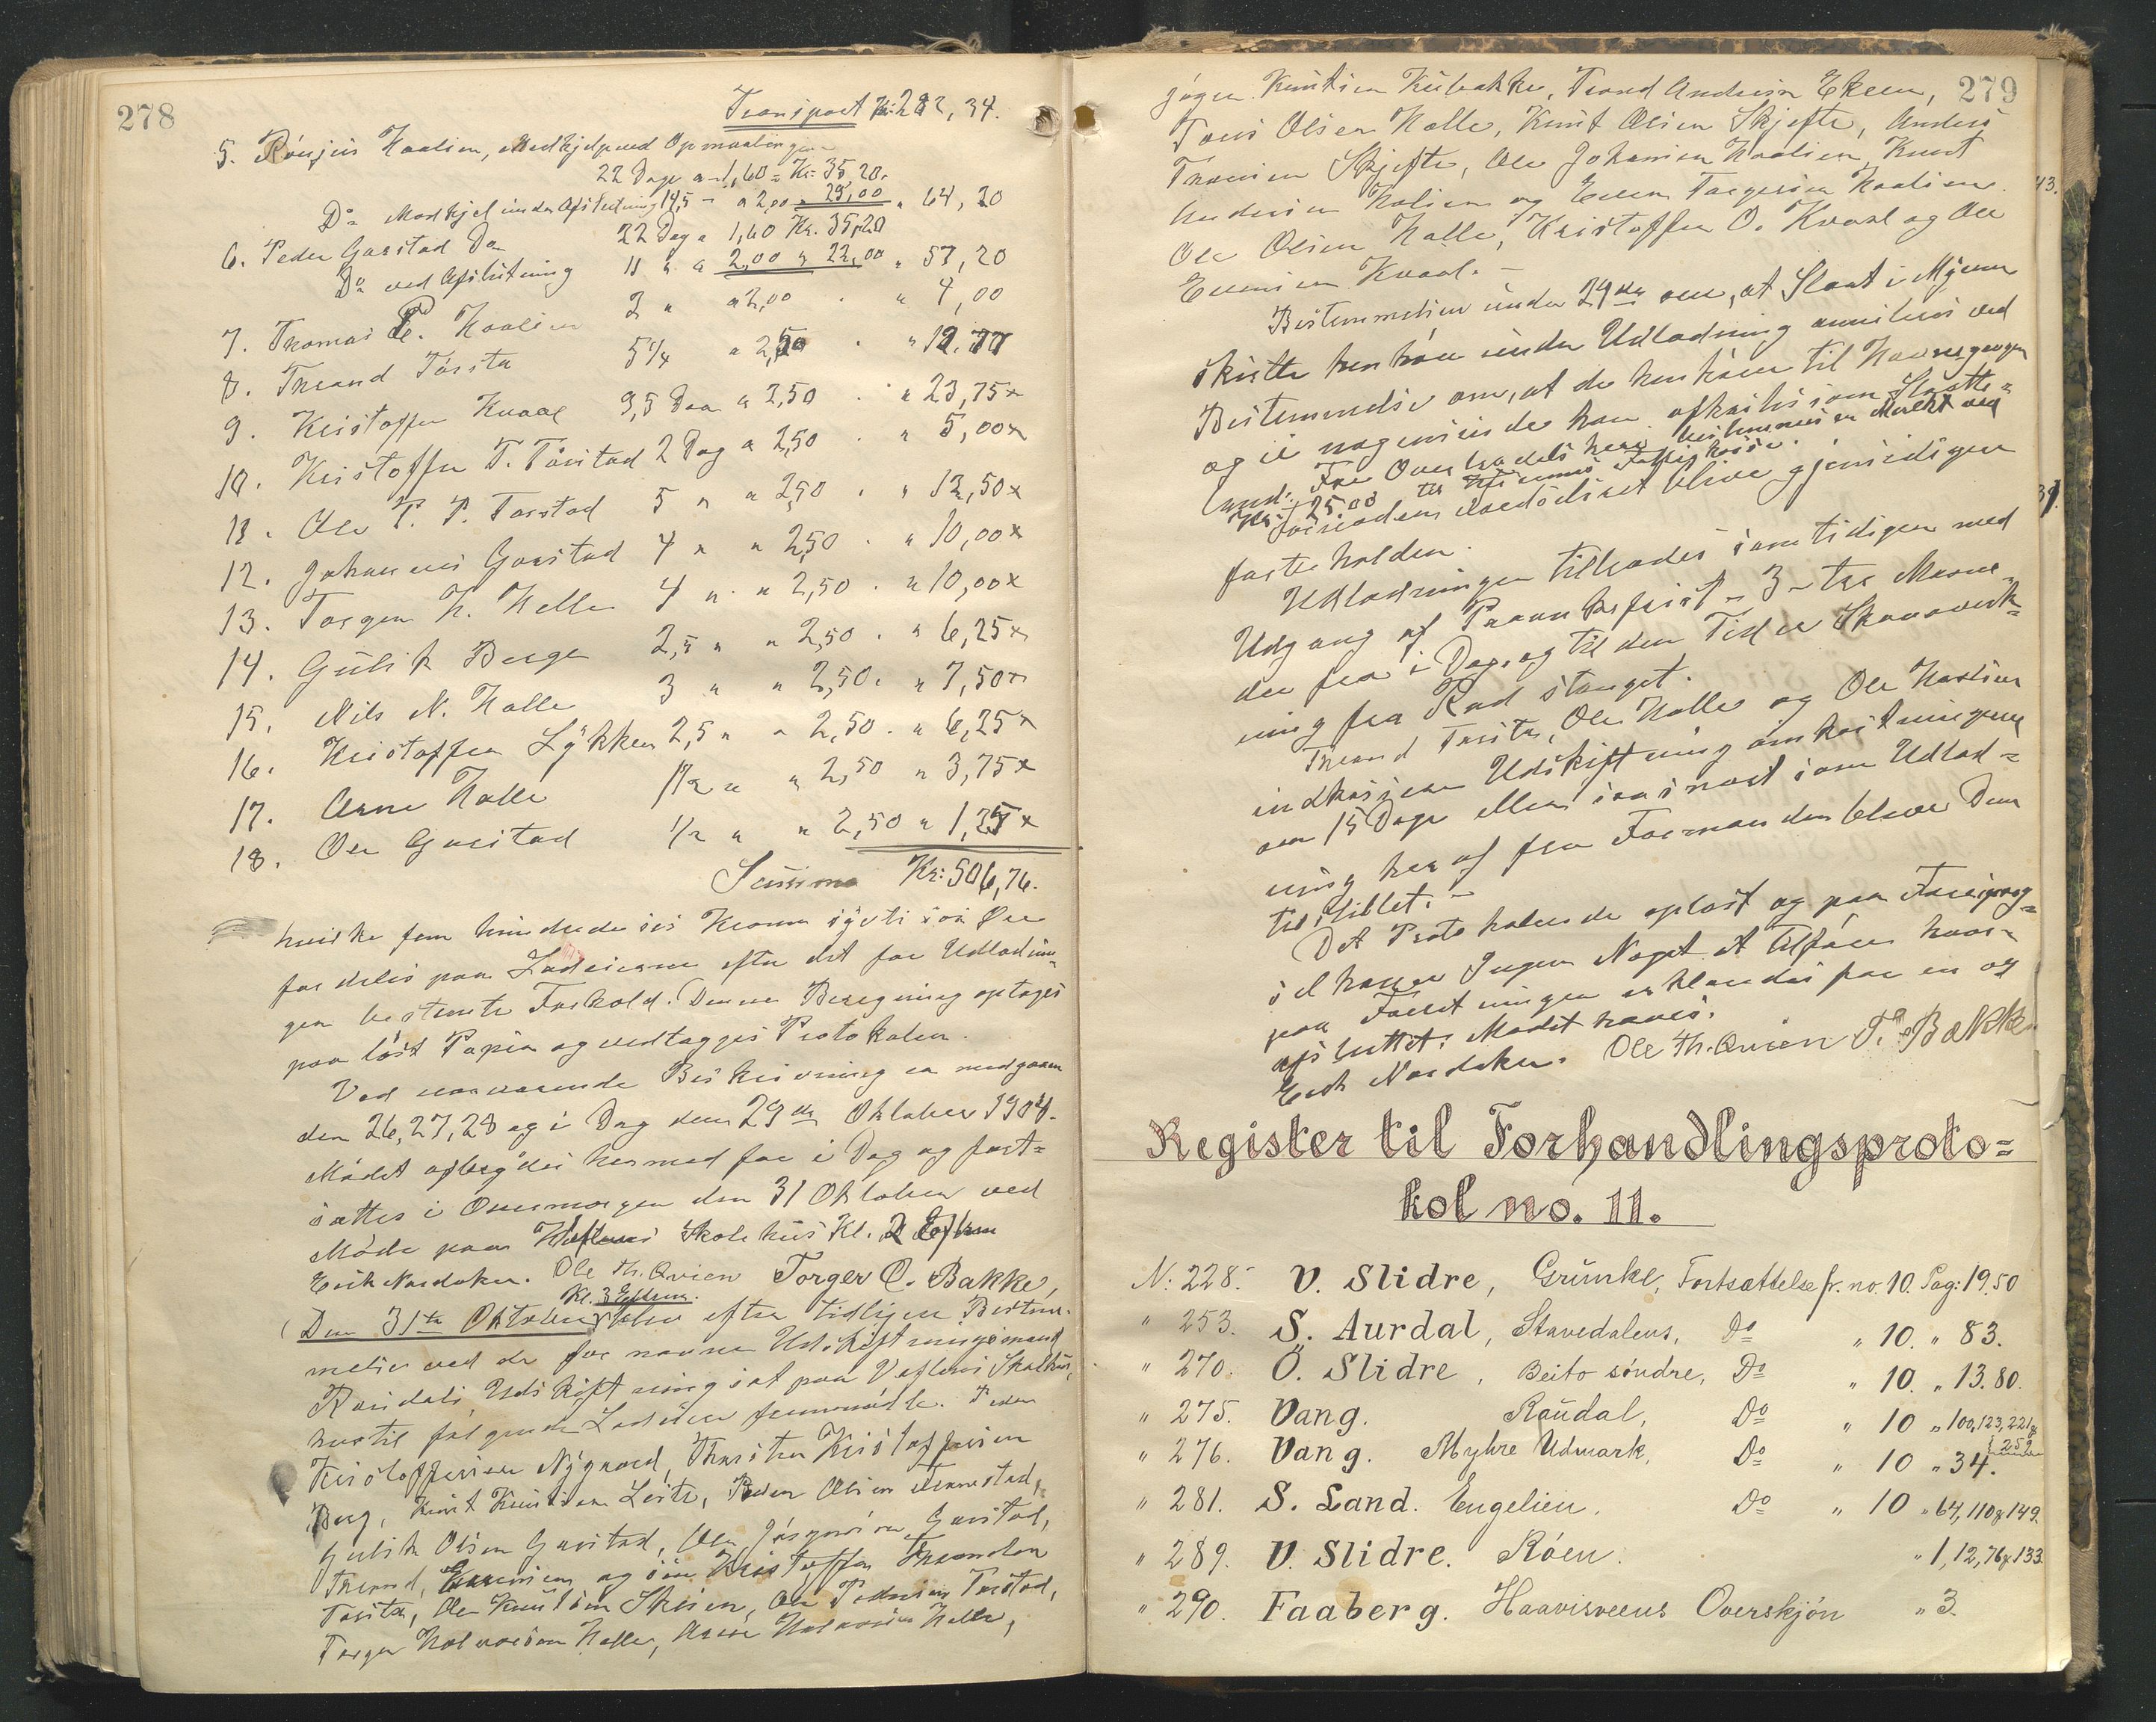 278
Transport Kr: 282,34.
5. Haalien, Medhjelp ved Opmaalingen
22 Dage a 1,60 = Kr. 35,20.
Do Medhjel under Afslutning 14,5 - a 2,00 " 29,00 " 64,20
6. Peder Garstad Do 22 Dag a 1,60 Kr. 35,20
Do ved Afslutning 11 " a 2,00 " 22,00 " 57,20
7. Thomas P. Haalien 2 " a 2,00 . " 4,00
8. Thrand Tørsta 5 1/4 a 2,50 . " 12.77
9. Kristoffer Kvaal 9,5 Dag a 2,50 . " 23,75 x
10. Kristoffer T. Tørstad 2 Dag a 2,50 . " 5,00 x
11. Ole T. P. Tørstad 5 " a 2,50 . " 12,50 x
12. Johannes Garstad 4 " " 2,50 . " 10,00 x
13. Torger H. Halle 4 " " 2,50 . " 10,00 x
14. Gulik Berge 2,5 " " 2,50 . " 6,25 x
15. Nils N. Halle 3 " " 2,50 . " 7,50 x
16. Kristoffer Løkken 2,5 " " 2,50 . " 6,25 x
17. Arne Halle 1 1/2 " " 2,50 " 3,75 x
18. Ole Garstad 1/2 " " 2,50 " 1,25 x
Summa Kr: 506,76.
hvilke fem hundrede sex Kroner syvti sex Øre
fordeles paa Lodeierne efter det for Udlodnin-
gen bestemte Forhold. Denne Beregning optoges
paa løst Papir og vedlægges Protokolen.
Ved nærværende Beskrivning er medgaaet
den 26, 27, 28 og i Dag den 29de Oktober 1904.
Mødet afbrydes hermed for i Dag og fort-
sættes i Overmorgen den 31 Oktober ved
Møde paa Skolehus Kl. 2 Efterm
Erik Nordaker. Ole Th. Qvien Torger O. Bakke,
Kl. 3 Efterm.
Den 31te Oktober blev efter tidligere Bestem-
melse ved de før nævnte Udskiftningsmænd
Udskiftning sat paa Skolehus,
hvortil følgende Lodeiere fremmødte. Peder
Kristoffersen Nygaard, Thorsten Kristoffersen
Berg, Knut Knutsen Leite, Peder Olsen
Gulik Olsen Garstad, Ole Garstad,
Thrand og Kristoffer
Tørsta, Ole Knutsen Ole Pedersen Tørstad,
Torger Halvorsen Halle, Arne Halvorsen Halle,
279
Knutsen Kubakke, Trond Andersen Ekern,
Olsen Halle, Knut Olsen Skjefte, Anders
Skjefte, Ole Johansen Haalien, Knut
Andersen Halien og Even Torgersen Haalien.
Ole Olsen Halle, Kristoffer O. Kvaal og Ole
Evensen Kvaal. -
Bestemmelsen under 29de om, at Slaat i Myren
skulde henhøre under Udlodning annuleres ved
Bestemmelse om, at de henhører til Havnegangen
og ei nogensinde kan opkastes som Slaatte-
land. For
Kr. 25.00 til
fasteholden.
Udlodningen tiltrædes samtidigen med
Udgang af Paaankefrist - 3 - tre Maane-
der fra i Dag, og til den Tid er Skovvirk-
ning fra Rod stanget.
Thrand Tørsta, Ole Halle og Ole Haalien
indkasserer Udskiftningomkostningerne
om 15 Dage efter saasnart som Udlod-
ning heraf fra Formanden bleve Dem
tilstillet. -
Det Protokolerede oplæst og paa Forespørg-
sel havde Ingen Noget at tilføre hvor-
paa Forretningen erklærdes for en og
afsluttet. Mødet hæves.
Erik Nordaker. Ole Th. Qvien T. O. Bakke.
43.
Register til Forhandlingsproto=
kol no. 11.
No. 228. V. Slidre, Grünke, Fortsættelse fr. no. 10. Pag: 19.50
" 253. S. Aurdal, Stavedalens, Do " 10. " 83.
" 270. Ö. Slidre, Beito søndre, Do " 10. " 13.80.
" 275. Vang. Raudal, Do " 10 " 100,123,221 & 259
" 276. Vang. Myhre Udmark, Do " 10 " 34.
" 281. S. Land. Engelien. Do " 10 " 64,110 & 149.
" 289. V. Slidre. Röen. " 1,12,76 & 133.
" 290. Faaberg. Haavisveens Overskjön " 3.